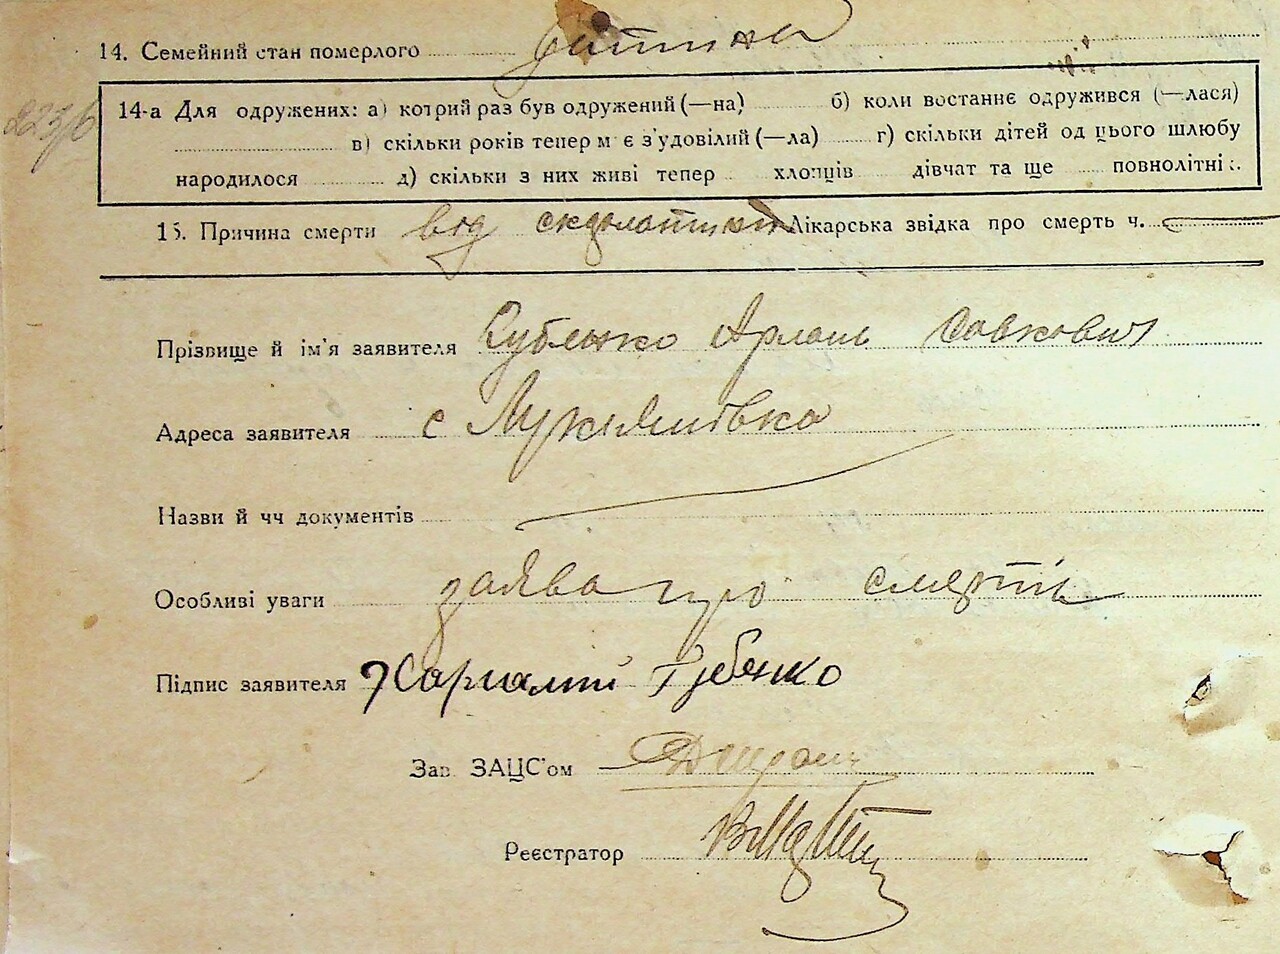 14. Семейний стан померлого дитина
223/б
14-а Для одружених: а) котрий раз був одружений (—на) б) коли востаннє одружився (—лася)
в) скільки років тепер м є з'удовілий (—ла) г) скільки дітей од цього шлюбу
народилося д) скільки з них живі тепер хлопців дівчат та ще повнолітні
15. Причина смерти від Лікарська звідка про смерть ч.
Прізвище й ім'я заявителя Савкович
Адреса заявителя с Лукіянівка
Назви й чч документів
Особливі уваги заява про смерть
Підпис заявителя Губенко
Зав ЗАЦС'ом
Реєстратор